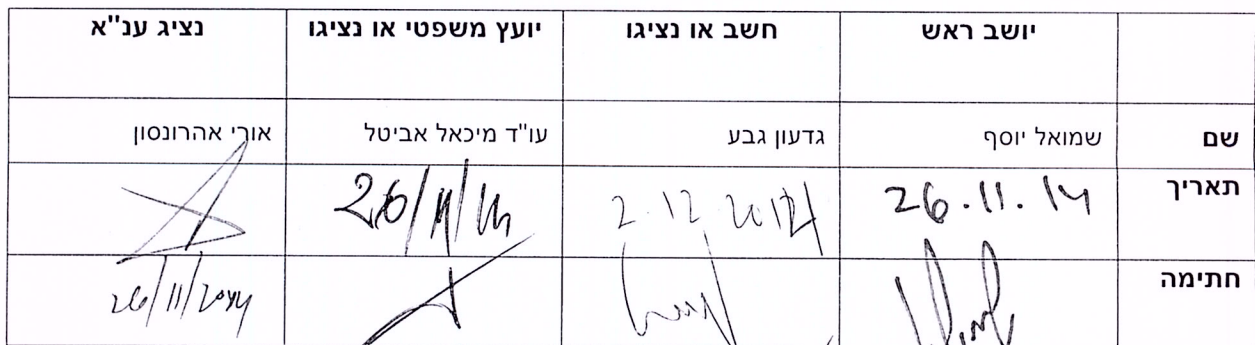 יושב ראש חשב או נציגו יועץ משפטי או נציגו נציג ענ"א
שם שמואל יוסף גדעון גבע עו"ד מיכאל אביטל אורי אהרונסון
תאריך 26.11.14 2.12.2014 26/11/14
חתימה 26/11/2014